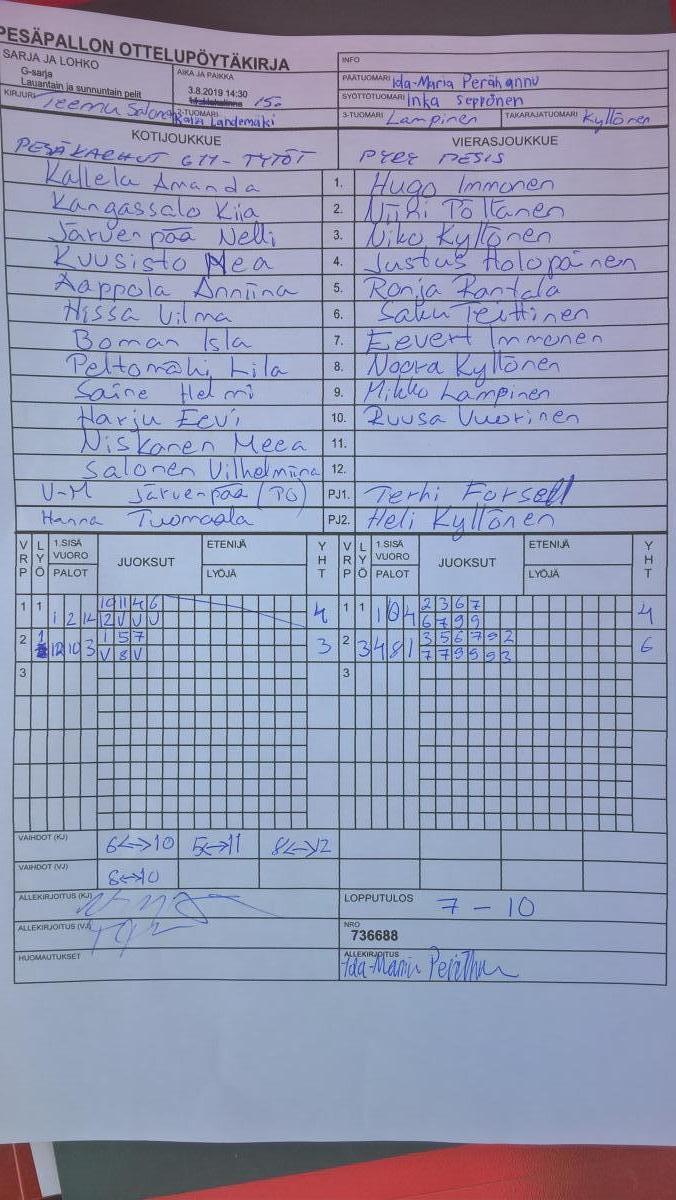 PESÄPALLON OTTELUPÖYTÄKIRJA
SARJA JA LOHKO
G-sarja
Lauantain ja sunnuntain pelit
AIKA JA PAIKKA
3.8.2019 14:30
INFO
PÄÄTUOMARI Ida-Maria Perähannu
SYÖTTÖTUOMARI Inka Seppönen
KIRJURI Teemu Salonen
2-TUOMARI Kaisa Landemäki
3-TUOMARI Lampinen TAKARAJATUOMARI Kyllönen
KOTIJOUKKUE VIERASJOUKKUE
PESÄKARHUT G11-TYTÖT PYRY PESIS
Kallela Amanda 1. Hugo Immonen
Kangassalo Kiia 2. Niki Poltanen
Järvenpää Nelli 3. Niko Kyllönen
Kuusisto Mea 4. Justus Holopainen
Aappola Anniina 5. Ronja Rantala
Hissa Vilma 6. Saku Teittinen
Boman Isla 7. Eevert Immonen
Peltomäki Lila 8. Noora Kyllönen
Saine Helmi 9. Mikko Lampinen
Harju Eevi 10. Ruusa Vuorinen
Niskanen Meea 11.
Salonen Vilhelmiina 12.
U-M Järvenpää (PJ) PJ1. Terhi Forsell
Hanna Tuomaala PJ2. Heli Kyllönen
VRP LYÖ 1.SISÄ VUORO PALOT JUOKSUT ETENIJÄ LYÖJÄ YHT VRP LYÖ 1.SISÄ VUORO PALOT JUOKSUT ETENIJÄ LYÖJÄ YHT
1 1 1 2 12 10 11 4 6 4 1 1 1 10 4 2 3 6 7 4
12 V V V 6 7 9 9
2 1 12 10 3 1 5 7 3 2 3 4 8 1 3 5 6 7 9 2 6
V 8 V 7 7 9 9 9 3
3 3
VAIHDOT (KJ) 6<->10 5<->11 8<->12
VAIHDOT (VJ) 8<->10
ALLEKIRJOITUS (KJ) LOPPUTULOS 7 - 10
ALLEKIRJOITUS (VJ) NRO
736688
HUOMAUTUKSET ALLEKIRJOITUS
Ida-Maria Perähannu